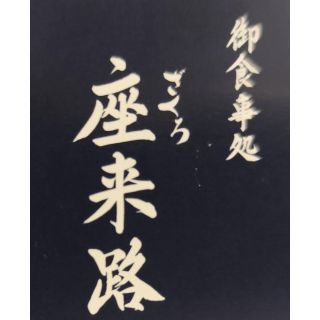 御食事処
ざくろ
座来路